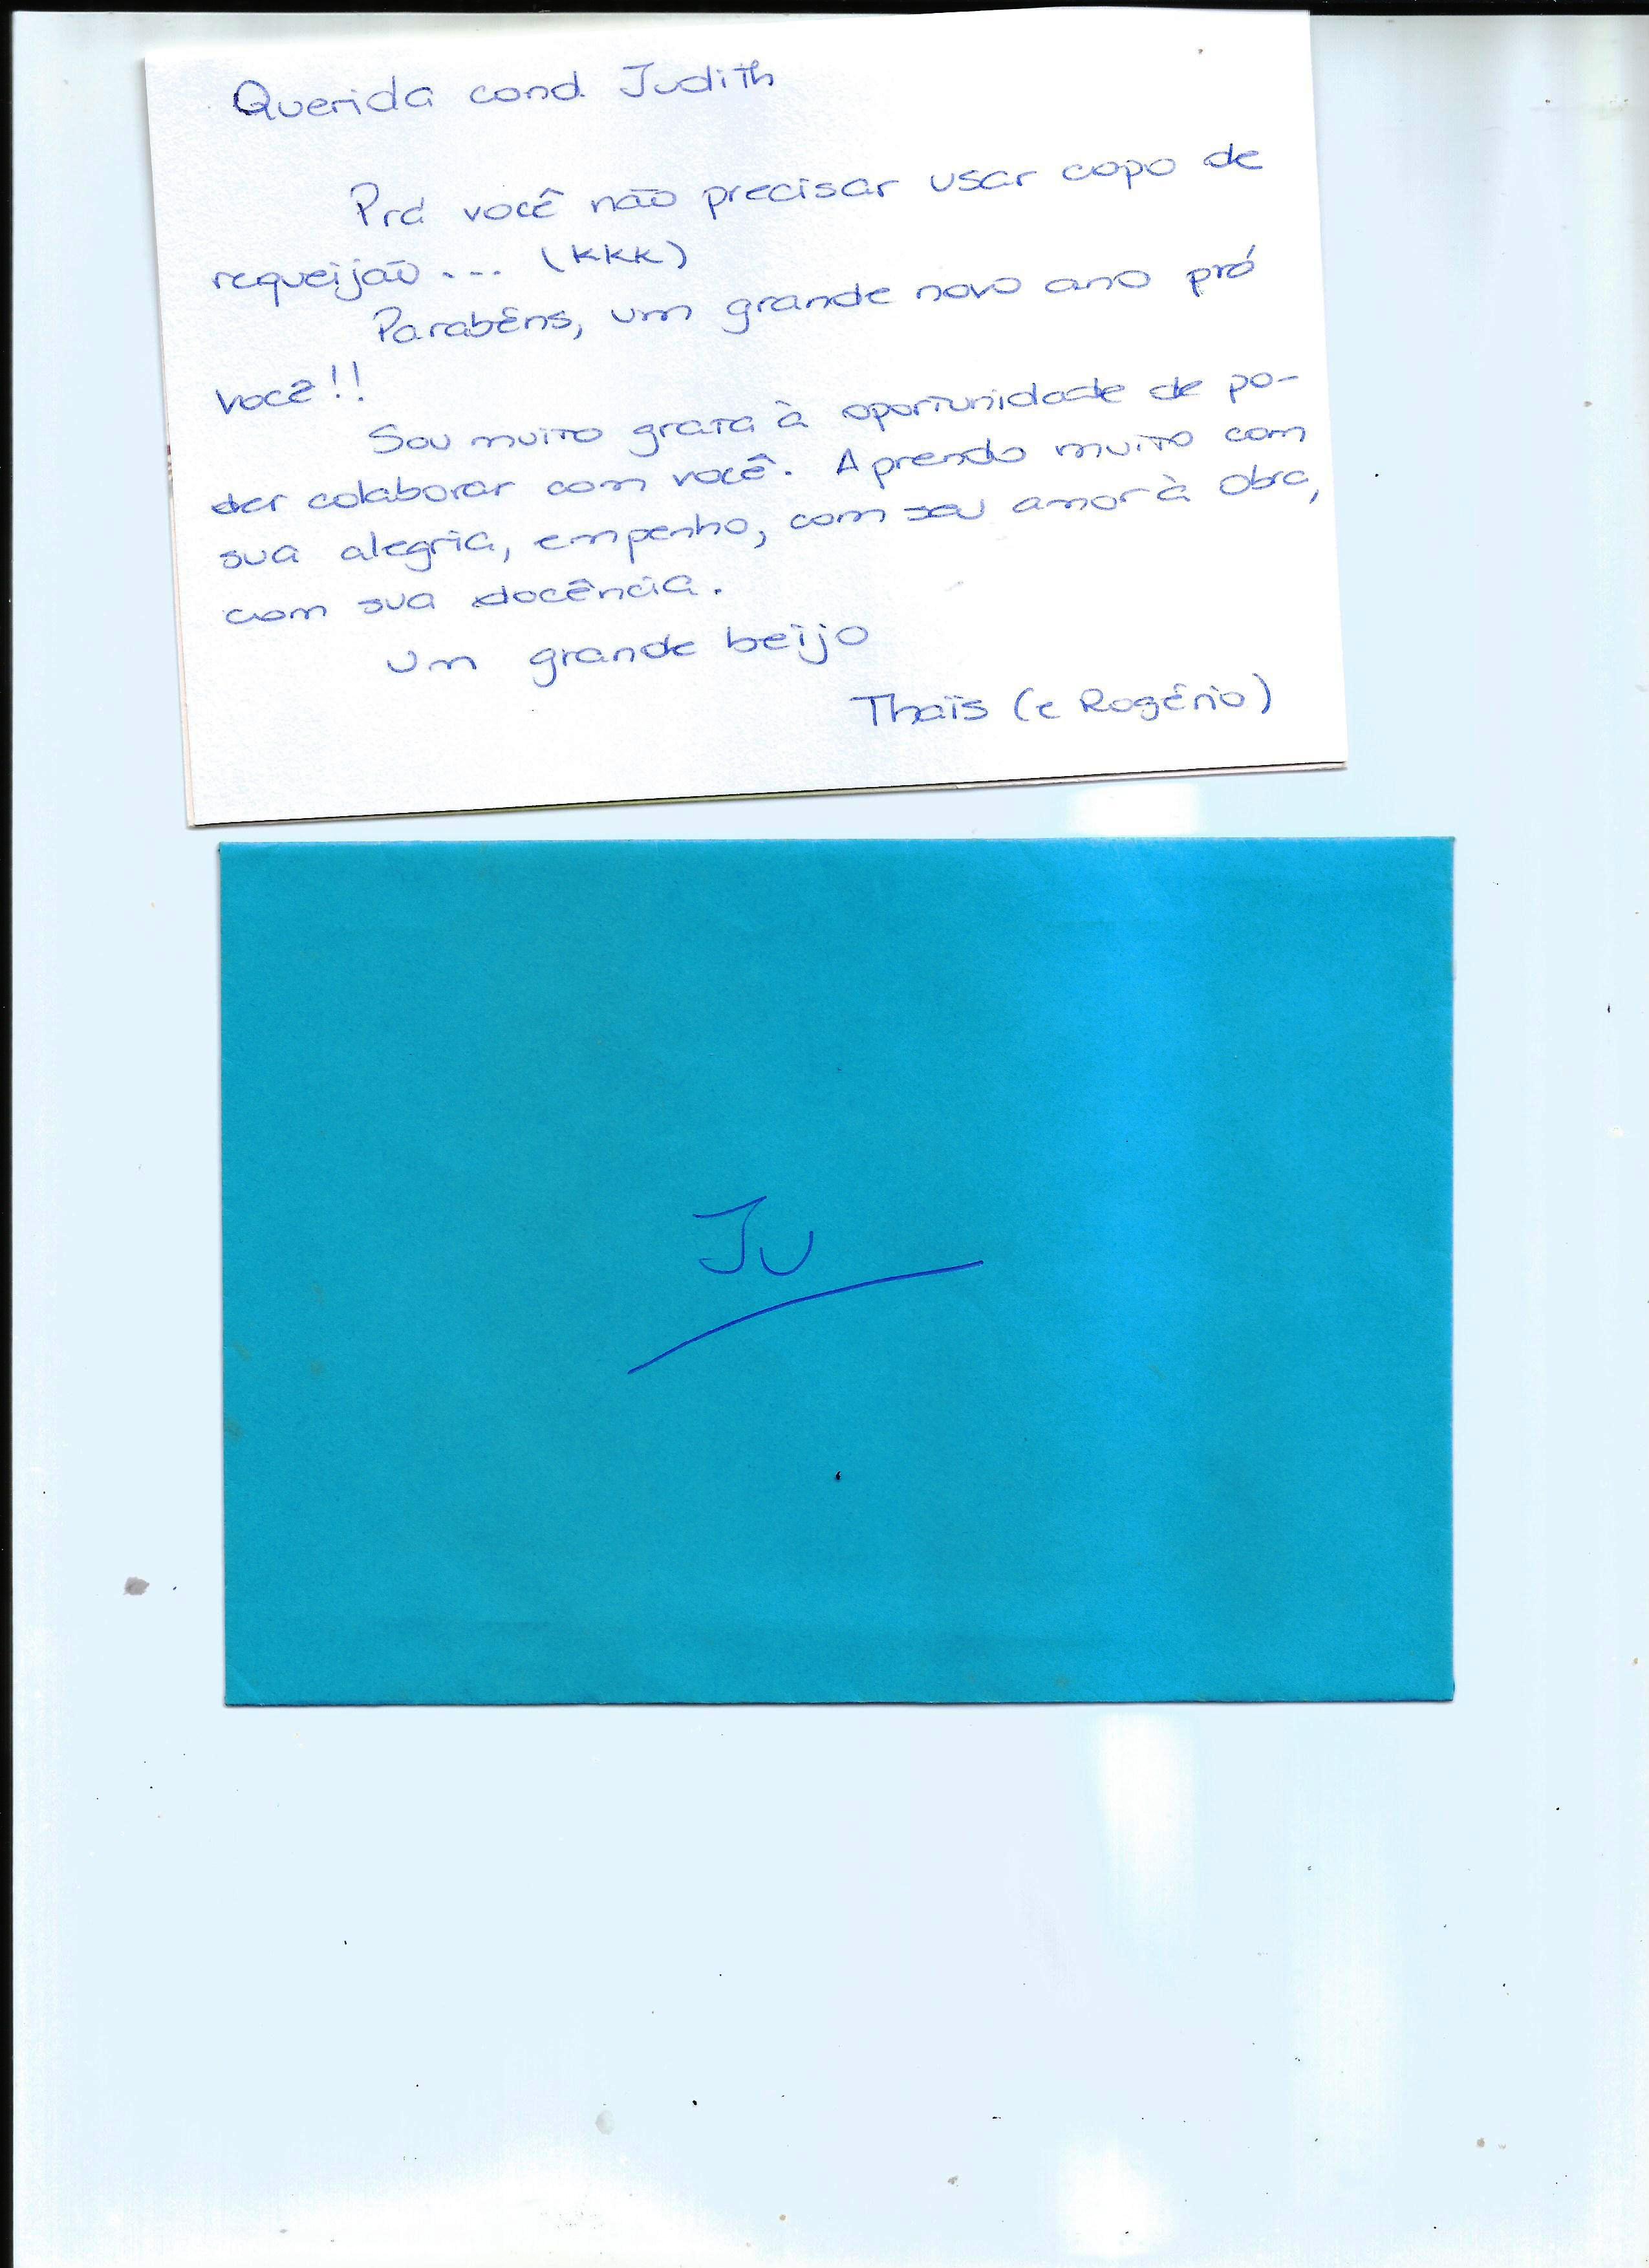 Querida cond. Judith
Prá você não precisar usar copo de
requeijão... (kkk)
Parabéns, um grande novo ano prá
você!!
Sou muito grata à oportunidade de po-
der colaborar com você. Aprendo muito com
sua alegria, empenho, com seu amor à obra,
com sua docência.
um grande beijo
Thaïs (e Rogério)
Ju